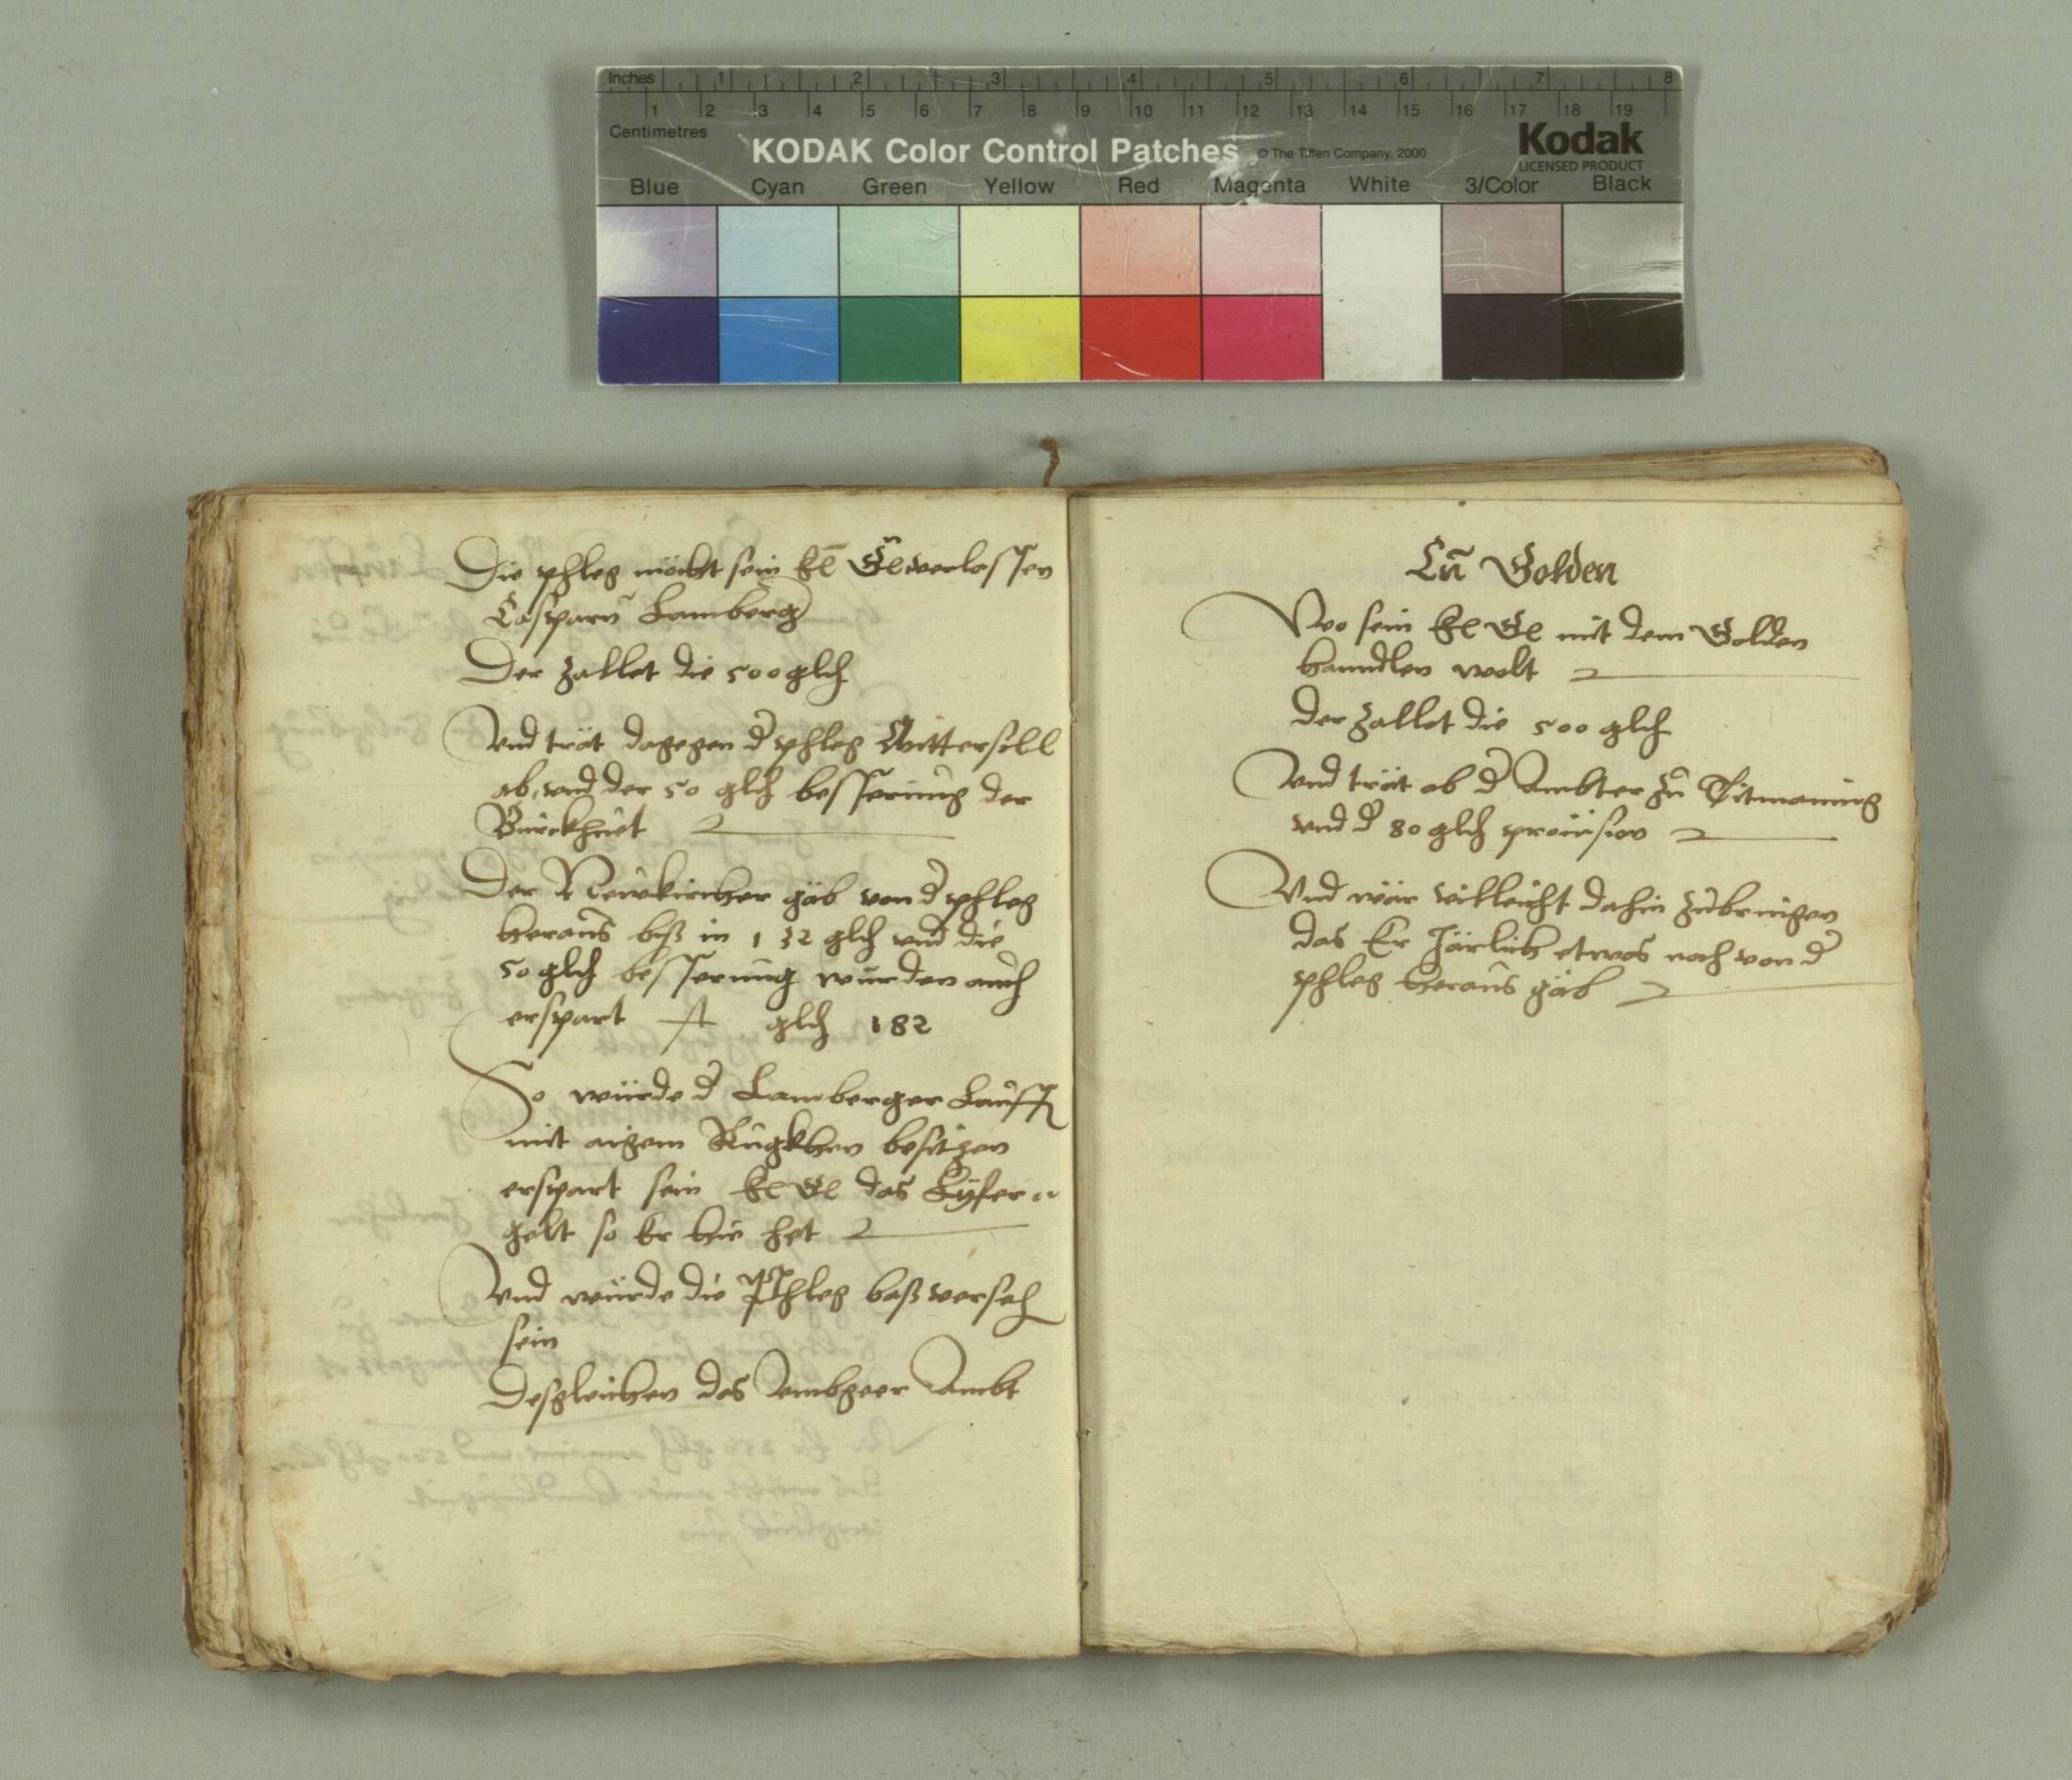 Inches 1 2 3 4 5 6 7 8
1 2 3 4 5 6 7 8 9 10 11 12 13 14 15 16 17 18 19
Centimetres
KODAK Color Control Patches © The Tiffen Company, 2000
Kodak
LICENSED PRODUCT
Blue Cyan Green Yellow Red Magenta White 3/Color Black
Die phleg möcht sein verlassen
Casparn Lamberg
Der zallet die 500 glch
Vnd trät dagegen d phleg Mittersill
ab, vnd der 50 glch besserung der
Burckhuet
Der Newkircher gäb von d phleg
heraus biß in 132 glch vnd die
50 glch besserung wurden auch
erspart glch 182
So würde d Lamberger
mit aigem Rugkhen besitzen
erspart sein das
gelt so Er hie het
Vnd würde die Phleg baß verseh
sein
Desgleichen das Ambt
Golden
Wo sein mit dem Golden
hanndlen wolt
der zallet die 500 glch
Vnd trät ab d Ambter zu Titmaning
vnd d 80 glch prouision
Vnd wär villeicht dahin zubringen
das Er Järlich etwas noch von d
phleg heraus gäb